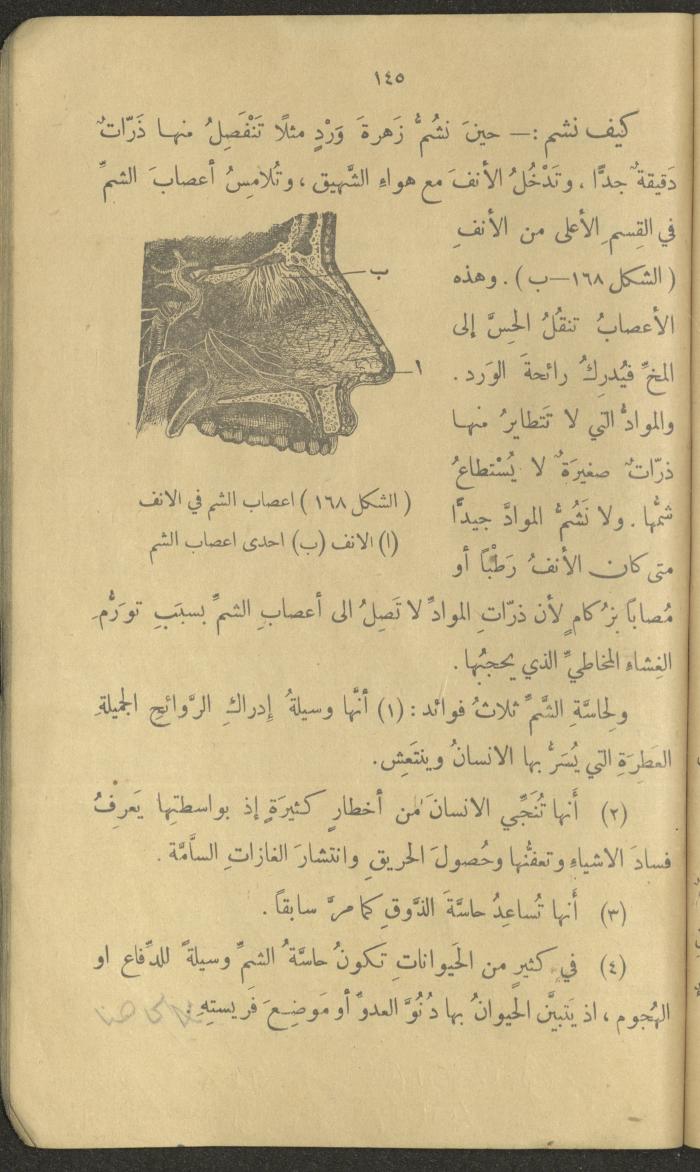 ١٤٥
كيف نشم :— حينَ نشُمُّ زَهرةَ وَرْدٍ مثلًا تَنْفَصِلُ منها ذَرّاتٌ
دَقيقةٌ جدًّا ، وتَدْخُلُ الأنفَ مع هواءِ الشَّهيق ، وتُلامِسُ أعصابَ الشمِّ
في القِسمِ الأعلى من الأنفِ
( الشكل ١٦٨—ب ) . وهذه
الأعصابُ تنقُلُ الحِسَّ إلى
المخِّ فيُدرِكُ رائحةَ الوَرد .
والموادُّ التي لا تَتطايرُ منها
ذرّاتٌ صغيرَةٌ لا يُسْتطاعُ
شمُّها . ولا نَشُمُّ الموادَّ جيدًّا
متى كان الأنفُ رَطْبًا أو
ب
ا
( الشكل ١٦٨ ) اعصاب الشم في الانف
(ا) الانف (ب) احدى اعصاب الشم
مُصاباً بزُكامٍ لأن ذرّاتِ الموادِّ لا تَصِلُ الى أعصابِ الشمِّ بسبَبِ تورُّمِ
الغِشاءِ المخاطيِّ الذي يحجبُها .
ولِحاسَّةِ الشَّمِّ ثلاثُ فوائد : (١) أنَّها وسيلةُ إدراكِ الرَّوائحِ الجميلةِ
العَطِرَةِ التي يُسَرُّ بها الانسانُ وينتَعِش.
(٢) أنها تُنَجِّي الانسانَ من أخطارٍ كثيرَةٍ إذ بواسطتِها يَعرِفُ
فسادَ الاشياءِ وتعفنُّها وحُصولَ الحريقِ وانتشارَ الغازاتِ السآمَّة .
(٣) أنها تُساعِدُ حاسَّةَ الذَّوقِ كما مرَّ سابقاً .
(٤) في كثيرٍ من الحَيواناتِ تَكونُ حاسَّةُ الشمِّ وسيلةً للدِّفاع او
الهُجوم ، اذ يَتبيَّن الحيوانُ بها دُنُوَّ العدوِّ أو مَوضِعَ فَريستِهِ .